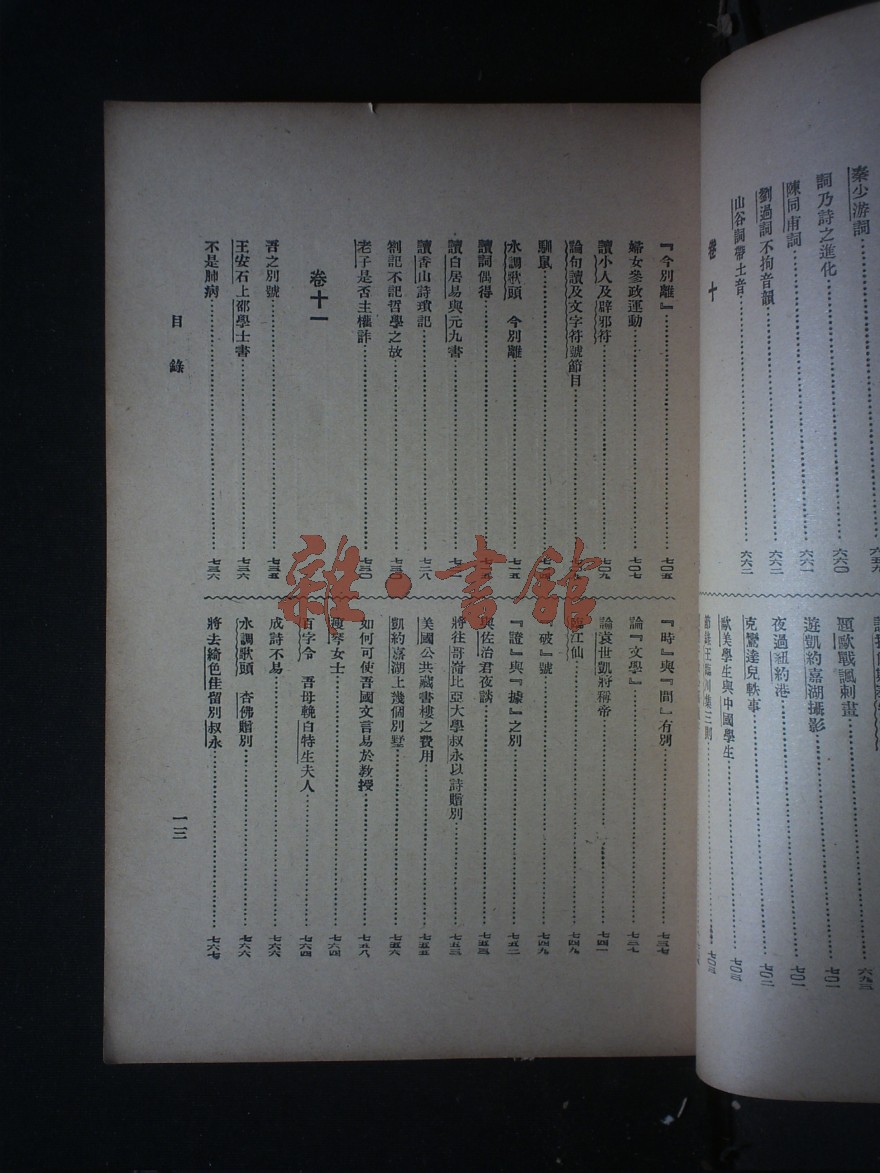 秦少游詞 六五九
詞乃詩之進化 六六〇
陳同甫詞 六六一
劉過詞不拘音韻 六六二
山谷詞帶土音 六六二
卷十
題歐戰諷刺畫 六九三
遊凱約嘉湖攝影 七〇一
夜過紐約港 七〇一
克鸞達兒軼事 七〇二
歐美學生與中國學生 七〇三
『今別離』 七〇五
婦女參政運動 七〇七
讀小人及辟邪符 七〇九
論句讀及文字符號節目
馴鼠
水調歌頭 今別離 七一五
讀詞偶得
讀白居易與元九書
讀香山詩瑣記 七二八
劄記不記哲學之故 七三〇
老子是否主權詐 七三〇
卷十一
吾之別號 七三五
王安石上邵學士書 七三六
不是肺病 七三六
『時』與『間』有別 七三七
論『文學』 七三七
論袁世凱將稱帝 七四一
臨江仙 七四九
『破』號 七四九
『證』與『據』之別 七五二
與佐治君夜話 七五三
將往哥崙比亞大學叔永以詩贈別 七五三
美國公共藏書樓之費用 七五五
凱約嘉湖上幾個別墅 七五六
如何可使吾國文言易於教授 七五八
瘦琴女士 七六四
百字令 吾母輓白特生夫人 七六四
成詩不易 七六六
水調歌頭 杏佛贈別 七六六
將去綺色佳留別叔永 七六七
目錄
一三
雜·書館